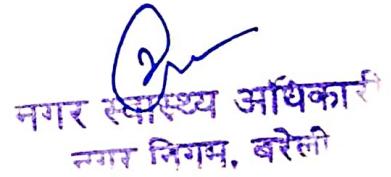 नगर स्वास्थ्य अधिकारी
नगर निगम, बरेली